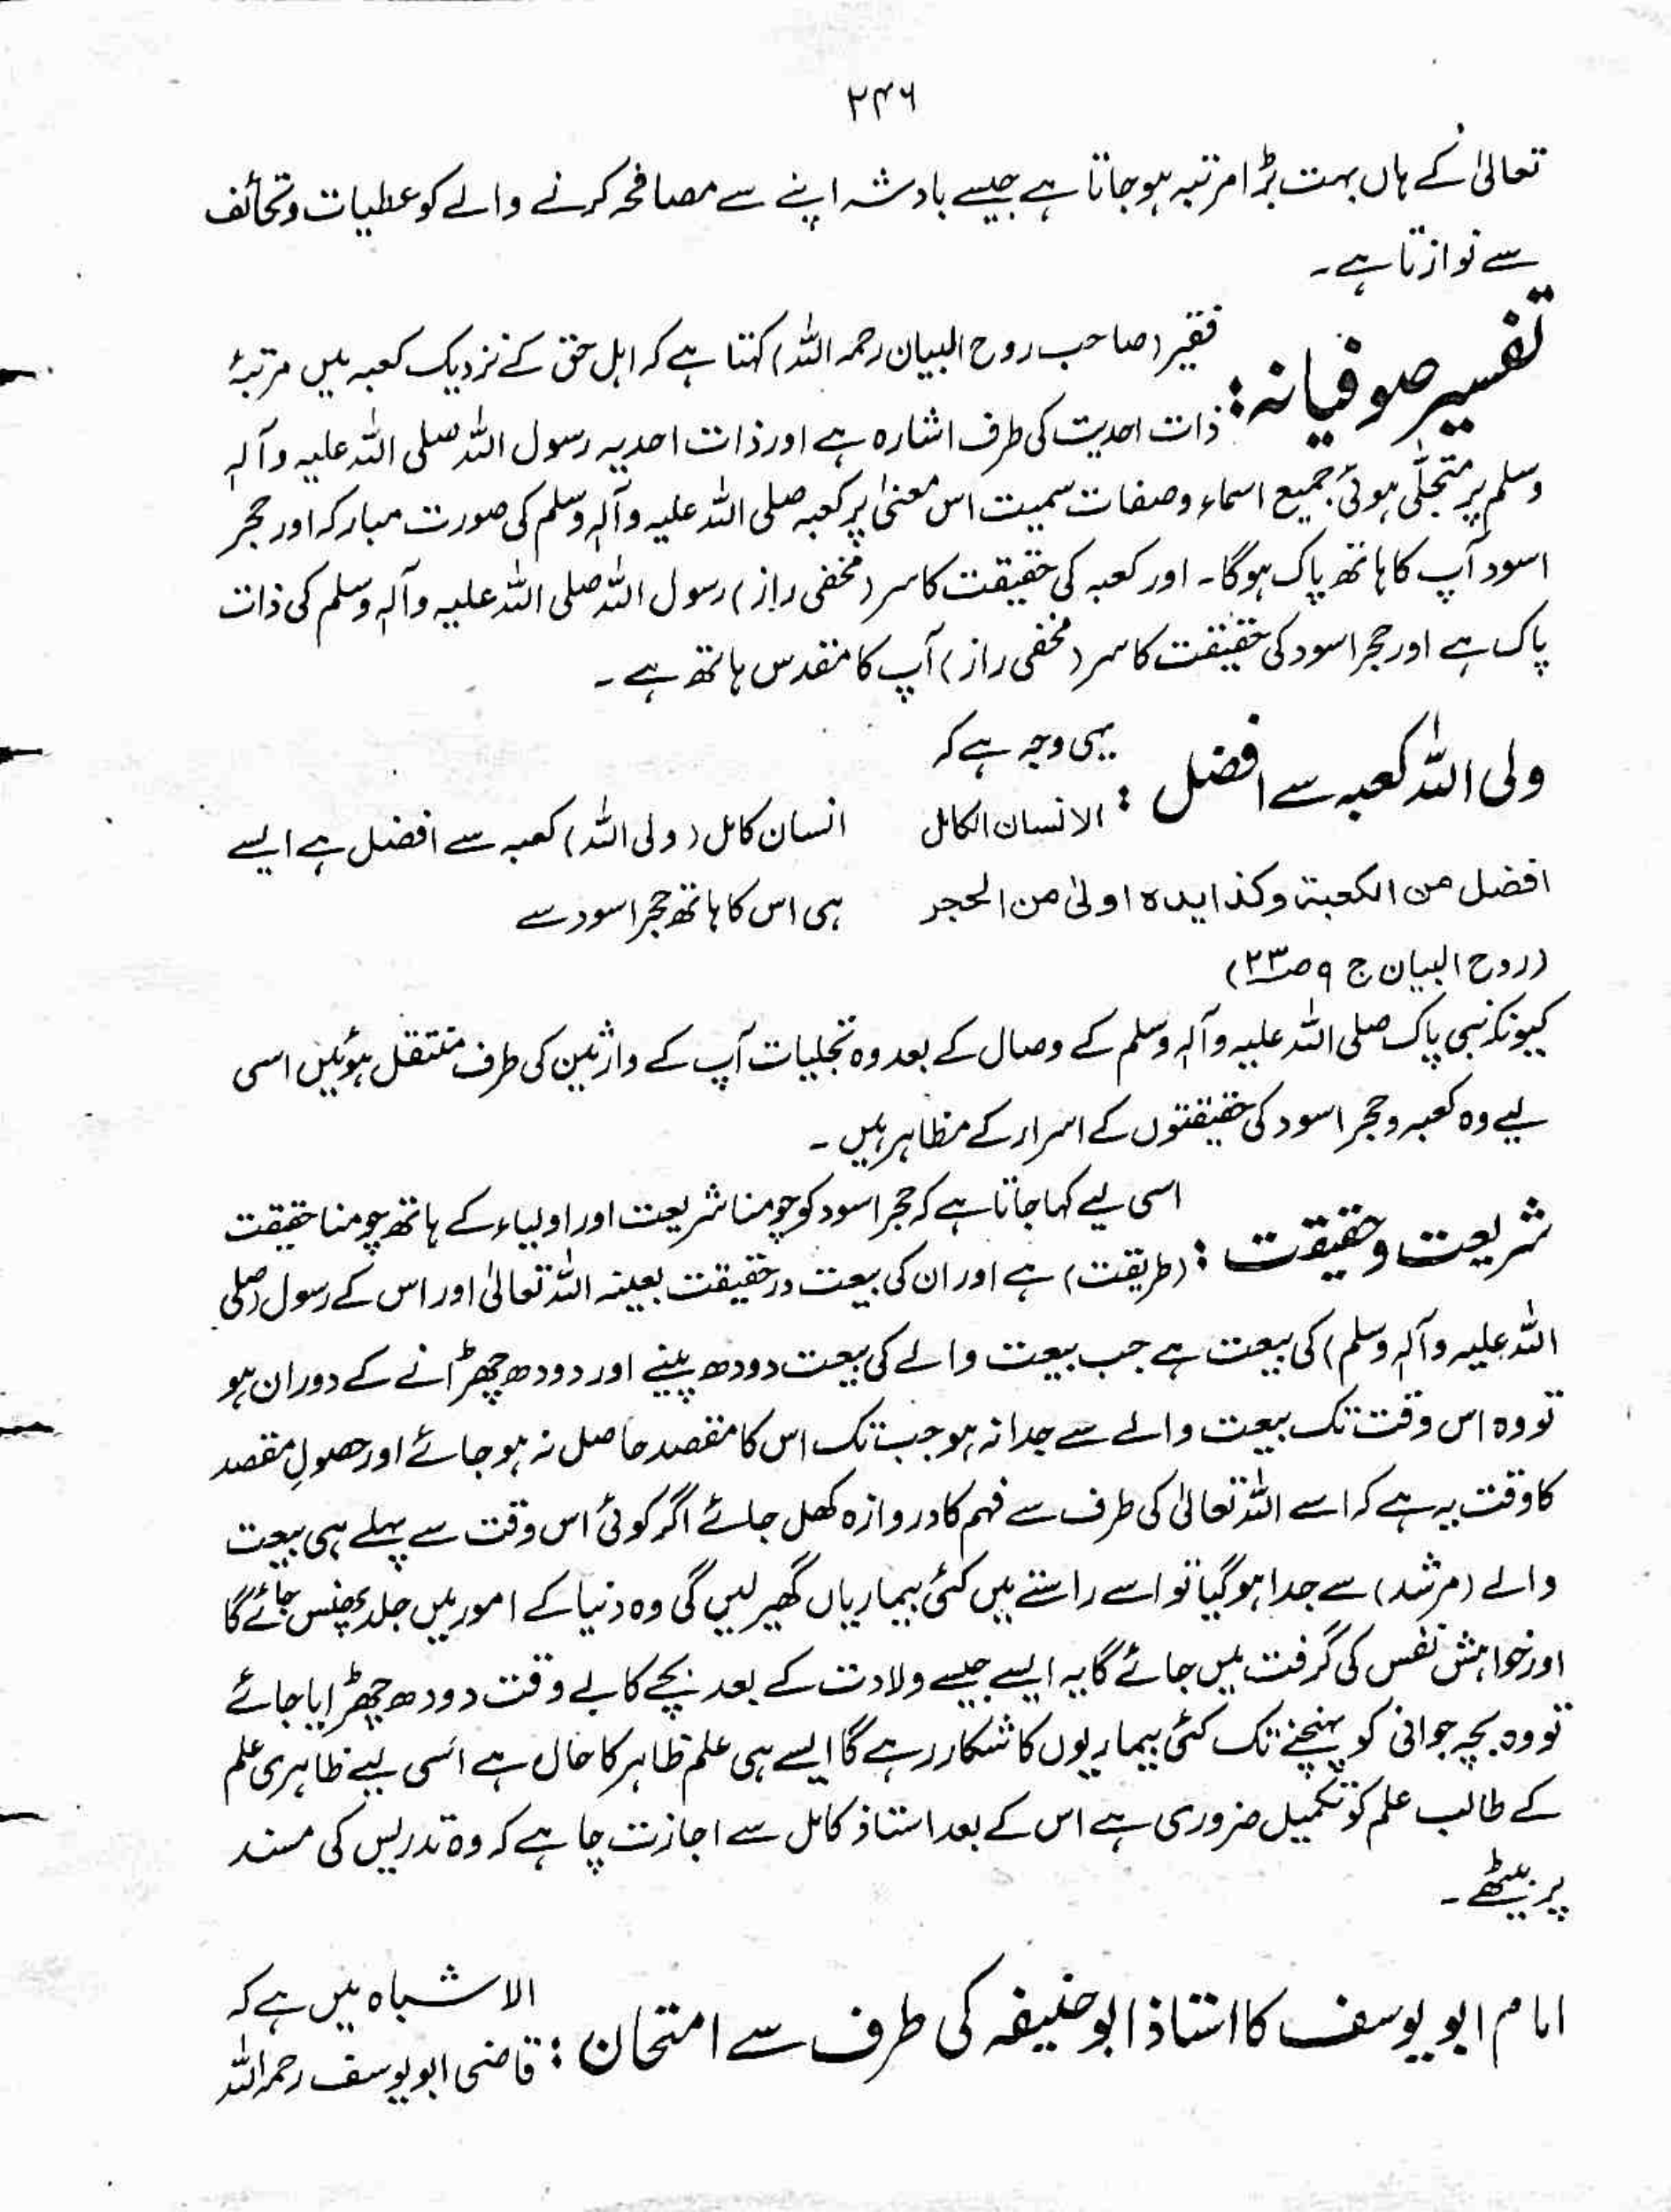 ۲۴۶
تعالیٰ کے ہاں بہت بڑا مرتبہ ہو جاتا ہے جیسے بادشہ اپنے سے مصافحہ کرنے والے کو عطیات و تحائف
سے نوازتا ہے۔
تفسیر صوفیانہ : فقیر (صاحب روح البیان رحمہ اللہ) کہتا ہے کہ اہل حق کے نزدیک کعبہ میں مرتبۂ
ذات احدیت کی طرف اشارہ ہے اور ذات احدیہ رسول اللہ صلی اللہ علیہ وآلہٖ
وسلم پر متجلّٰی ہوئی جمیع اسماء و صفات سمیت اس معنیٰ پر کعبہ صلی اللہ علیہ وآلہٖ وسلم کی صورت مبارکہ اور حجر
اسود آپ کا ہاتھ پاک ہوگا۔ اور کعبہ کی حقیقت کا سر (مخفی راز) رسول اللہ صلی اللہ علیہ وآلہٖ وسلم کی ذات
پاک ہے اور حجر اسود کی حقیقت کا سر (مخفی راز) آپ کا مقدس ہاتھ ہے۔
ولی اللہ کعبہ سے افضل : یہی وجہ ہے کہ
الانسان الکامل انسان کامل (ولی اللہ) کعبہ سے افضل ہے ایسے
افضل من الکعبۃ وکذا یدہ اولیٰ من الحجر ہی اس کا ہاتھ حجر اسود سے
(روح البیان ج ۹ ص۲۳)
کیونکہ نبی پاک صلی اللہ علیہ وآلہٖ وسلم کے وصال کے بعد وہ تجلیات آپ کے وارثین کی طرف منتقل ہوئیں اسی
لیے وہ کعبہ و حجر اسود کی حقیقتوں کے اسرار کے مظاہر ہیں۔
شریعت و حقیقت : اسی لیے کہا جاتا ہے کہ حجر اسود کو چومنا شریعت اور اولیاء کے ہاتھ چومنا حقیقت
(طریقت) ہے اور ان کی بیعت درحقیقت بعینہ اللہ تعالیٰ اور اس کے رسول (صلی
اللہ علیہ وآلہٖ وسلم) کی بیعت ہے جب بیعت والے کی بیعت دودھ پینے اور دودھ چھڑانے کے دوران ہو
تو وہ اس وقت تک بیعت والے سے جدا نہ ہو جب تک اس کا مقصد حاصل نہ ہو جائے اور حصولِ مقصد
کا وقت یہ ہے کہ اسے اللہ تعالیٰ کی طرف سے فہم کا دروازہ کھل جائے اگر کوئی اس وقت سے پہلے ہی بیعت
والے (مرشد) سے جدا ہو گیا تو اسے راستے میں کئی بیماریاں گھیر لیں گی وہ دنیا کے امور میں جلد پھنس جائے گا
اور خواہش نفس کی گرفت میں جائے گا یہ ایسے جیسے ولادت کے بعد بچے کا بے وقت دودھ چھڑایا جائے
تو وہ بچہ جوانی کو پہنچنے تک کئی بیماریوں کا شکار رہے گا ایسے ہی علم ظاہر کا حال ہے اسی لیے ظاہری علم
کے طالب علم کو تکمیل ضروری ہے اس کے بعد استاذ کامل سے اجازت چاہے کہ وہ تدریس کی مسند
پر بیٹھے۔
امام ابو یوسف کا استاذ ابو حنیفہ کی طرف سے امتحان : الاشباہ میں ہے کہ
قاضی ابو یوسف رحمہ اللہ